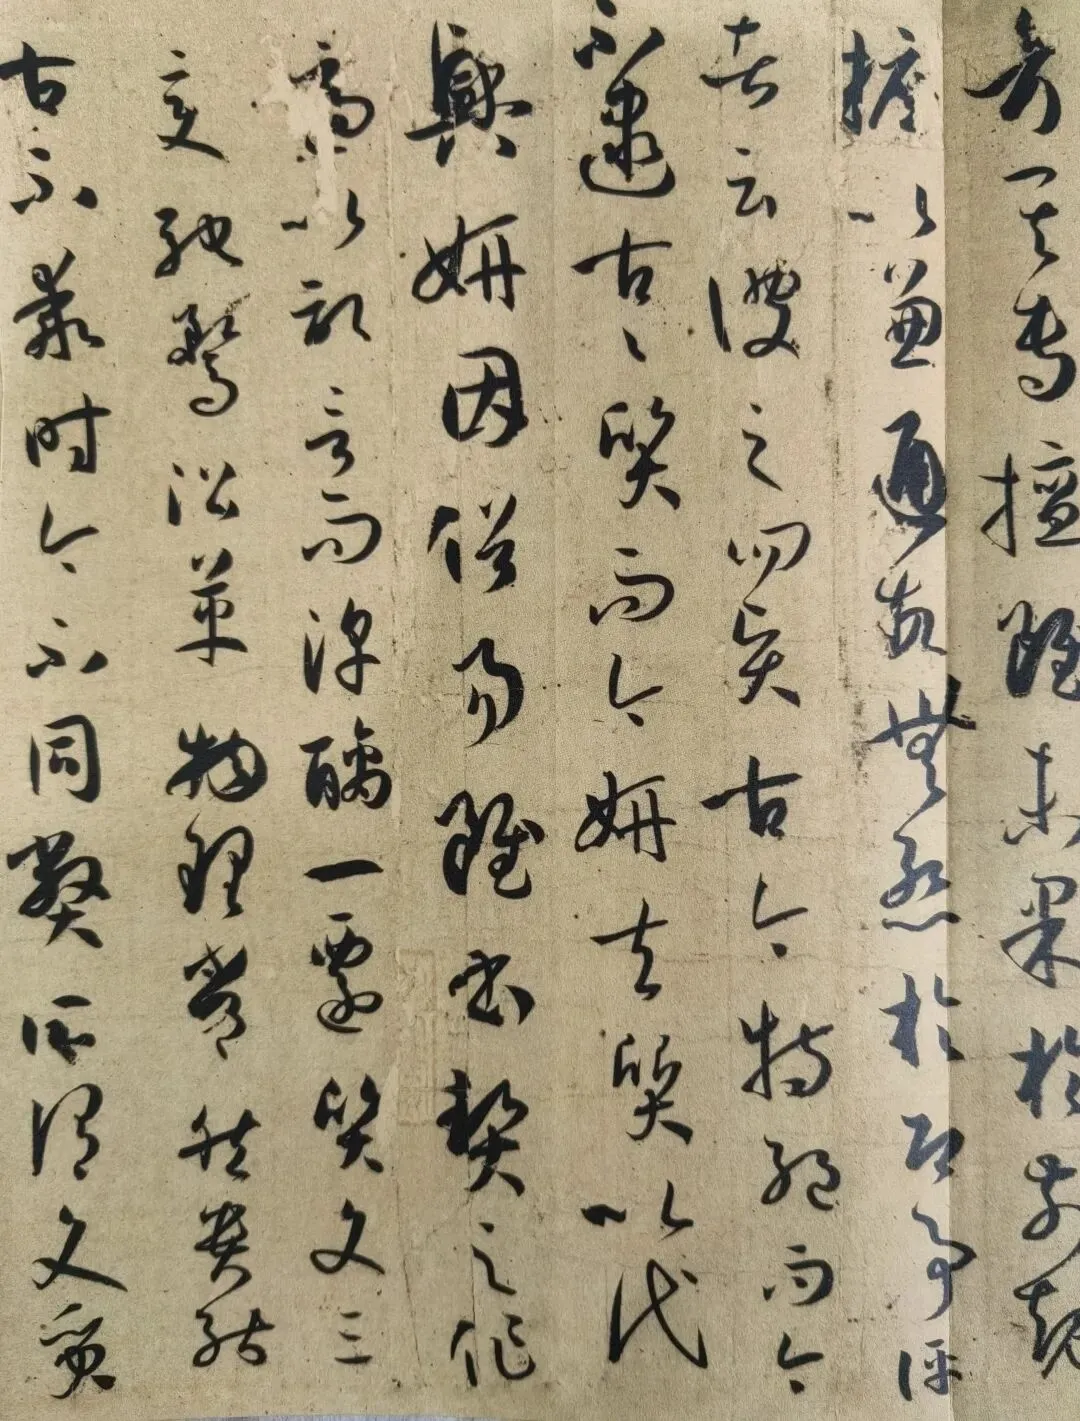 考其專擅雖未果於前規
摭以兼通故無慙於即事評
者云彼之四賢古今特絕而今
不逮古〻質而今妍夫質以代
興妍因俗易雖書契之作
適以記言而淳醨一遷質文三
變馳騖沿革物理常然貴能
古不乖時今不同弊所謂文質